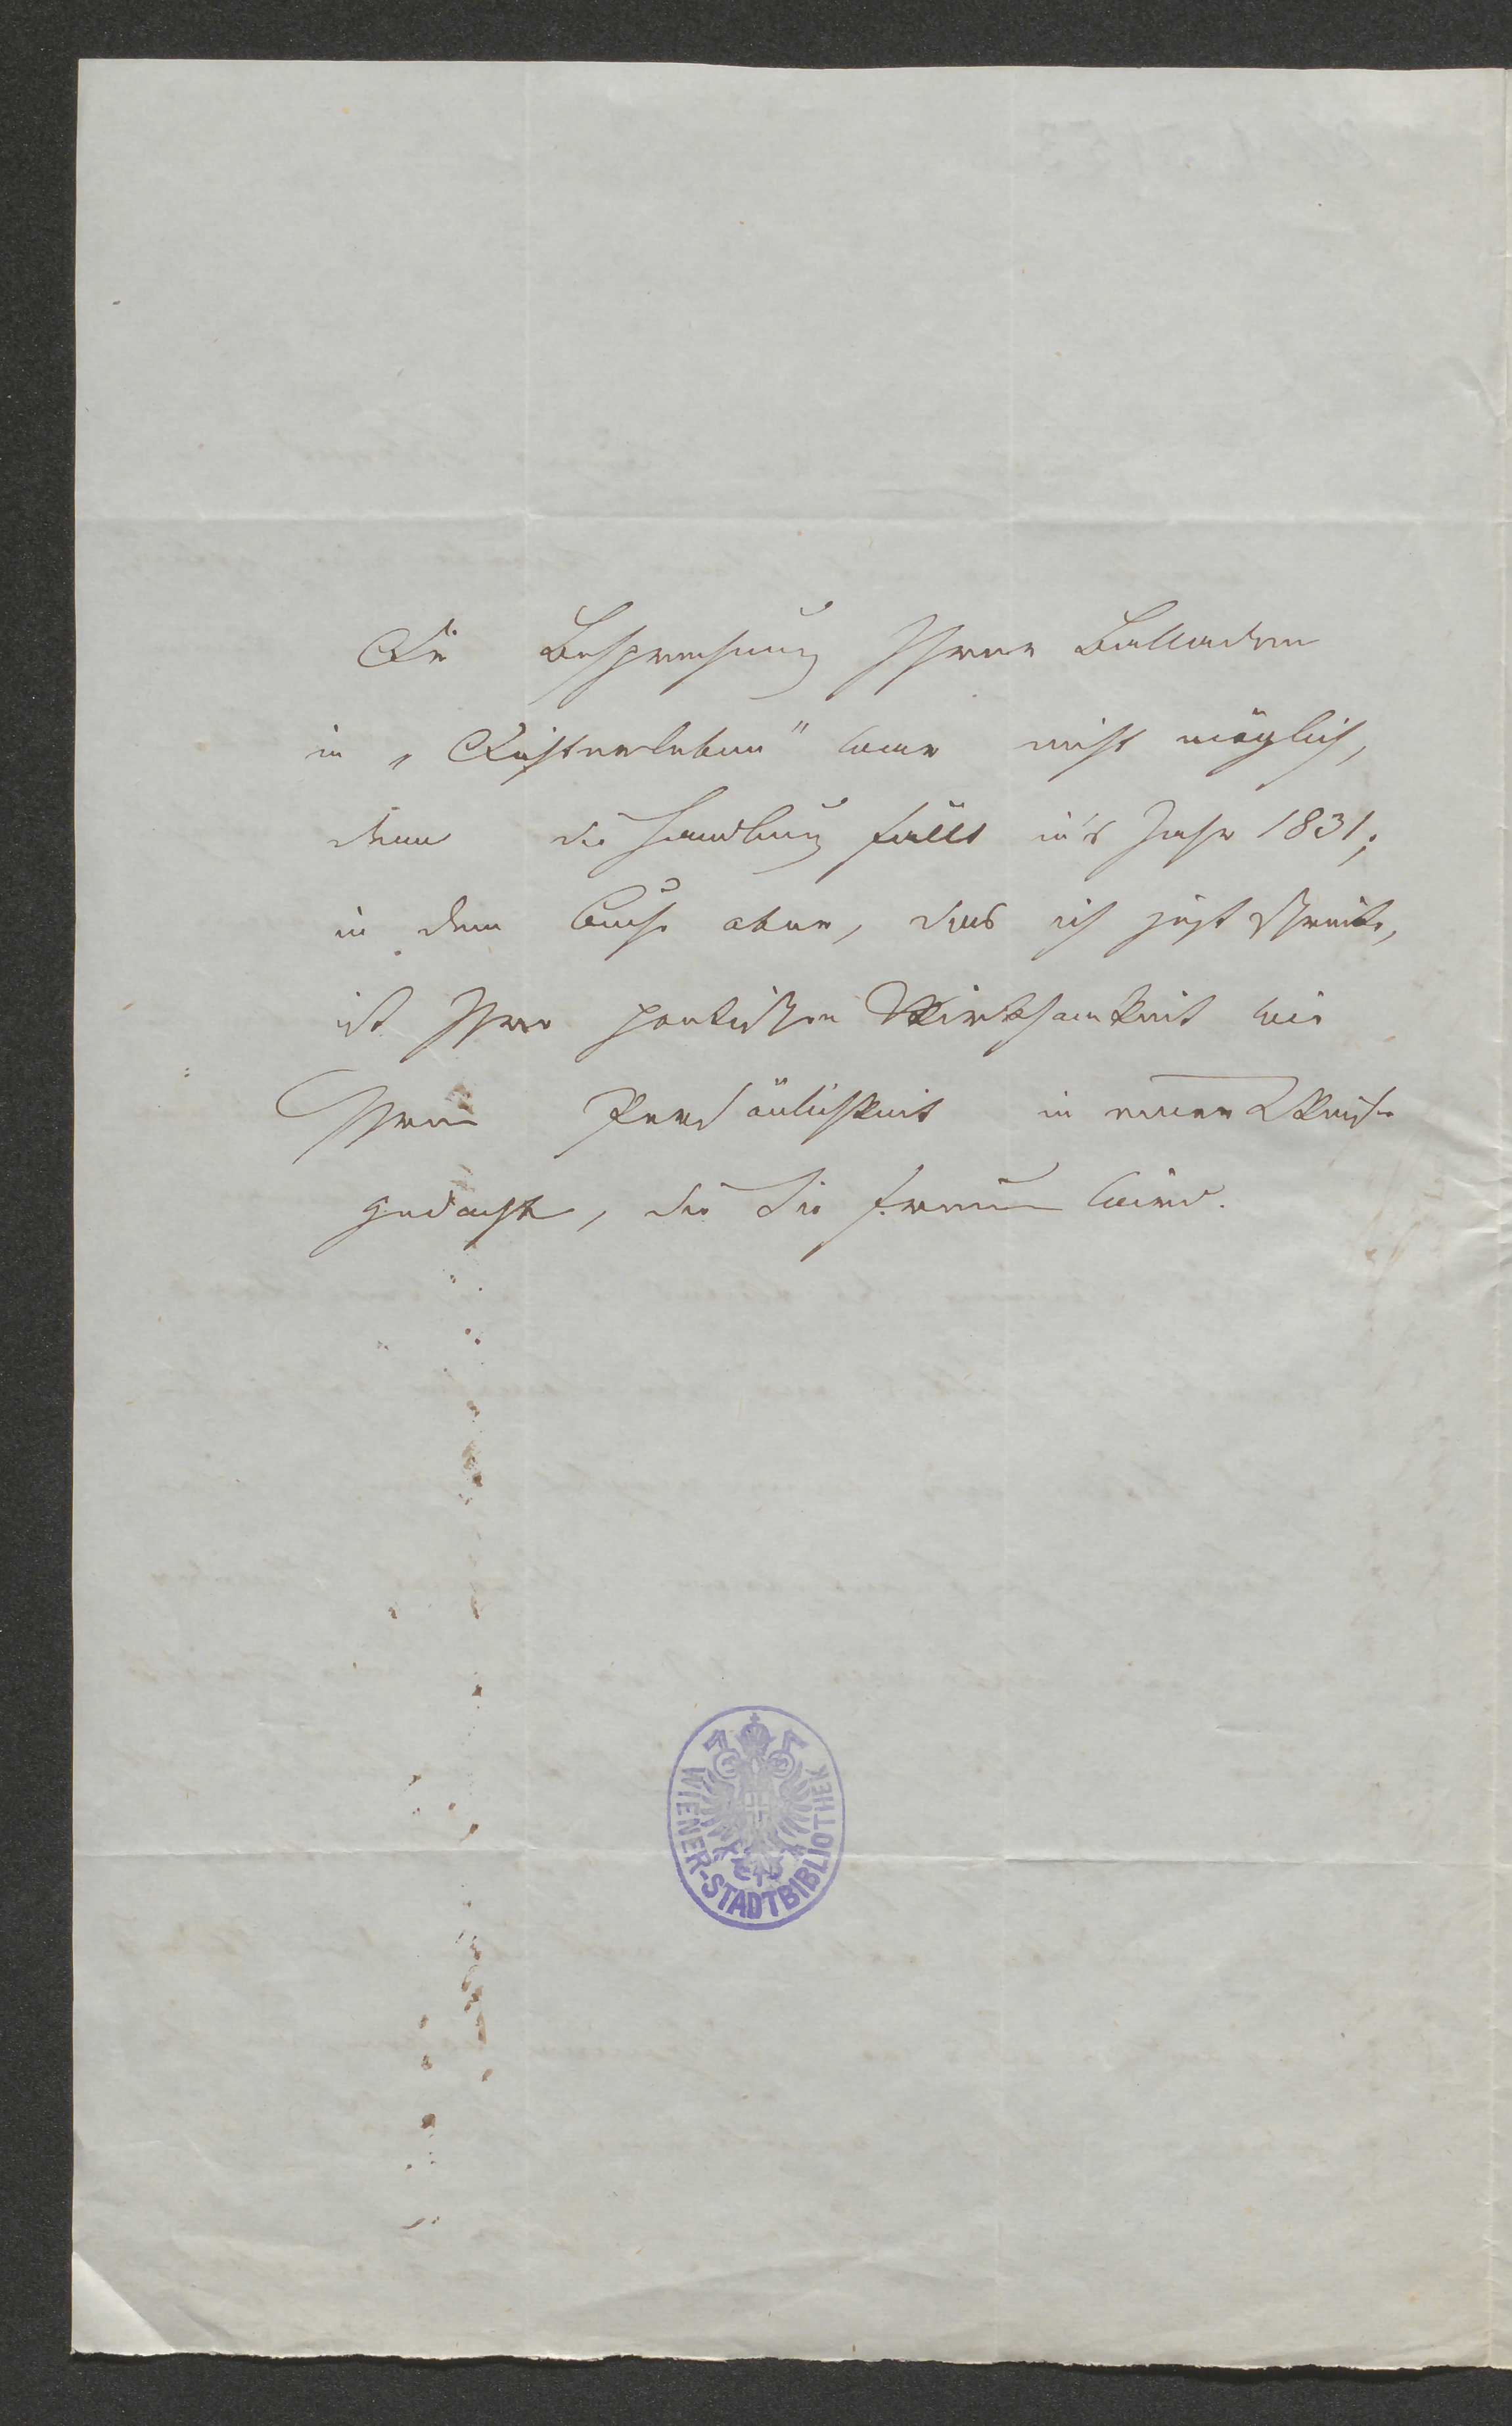 Die Besprechung Ihrer Balladen
in „Dichterleben" war nicht möglich,
denn die Handlung fällt in's Jahr 1831;
in dem Buche aber, das ich jetzt schreibe,
ist Ihrer poetischen Wirksamkeit wie
Ihrer Persönlichkeit in einer Weise
gedacht, die Sie freuen wird.
WIENER-STADTBIBLIOTHEK